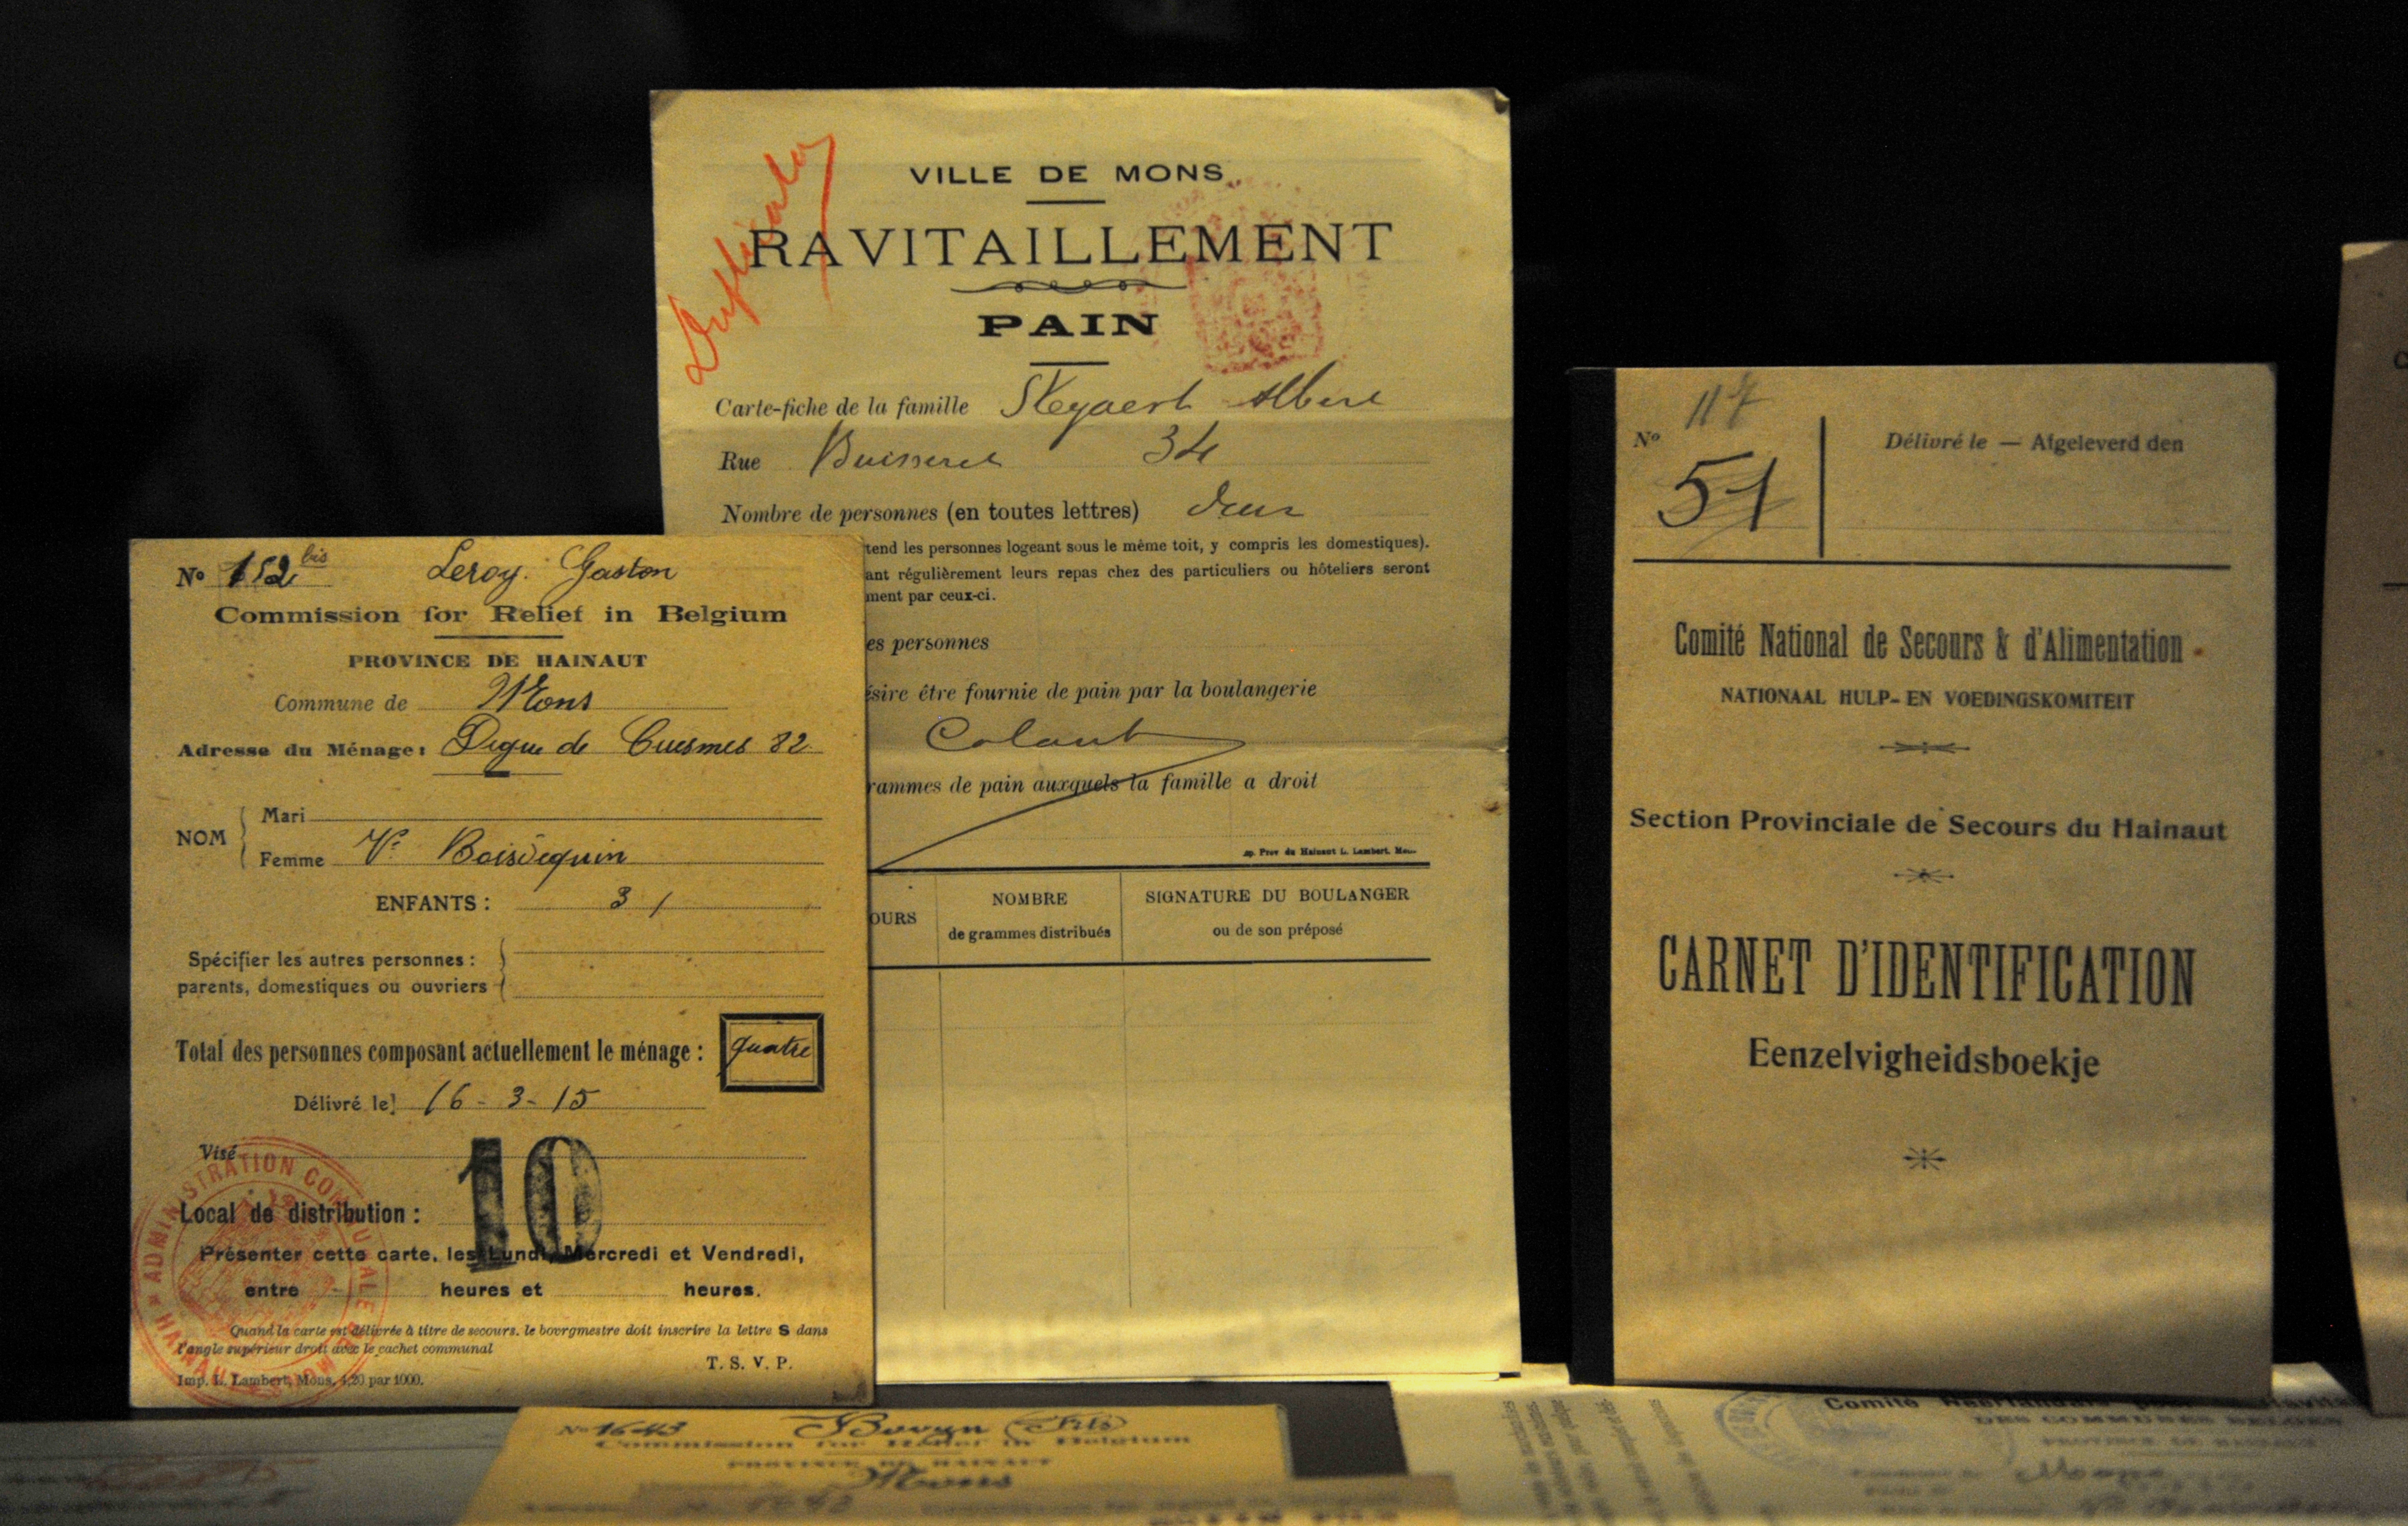 VILLE DE MONS
RAVITAILLEMENT
PAIN
Duplicata
Carte-fiche de la famille Steyaert Albert
Rue Buisseret 34
Nombre de personnes (en toutes lettres) deux
tend les personnes logeant sous le même toit, y compris les domestiques).
ant régulièrement leurs repas chez des particuliers ou hôteliers seront
ment par ceux-ci.
es personnes
ésire être fournie de pain par la boulangerie
Colaut
rammes de pain auxquels la famille a droit
Prov du Hainaut L. Lambert.
OURS
NOMBRE
de grammes distribués
SIGNATURE DU BOULANGER
ou de son préposé
No 152 bis Leroy. Gaston
Commission for Relief in Belgium
PROVINCE DE HAINAUT
Commune de Mons
Adresse du Ménage: Digue de Cuesmes 82
NOM
Mari
Femme Ve Boisdequin
ENFANTS : 3 /
Spécifier les autres personnes :
parents, domestiques ou ouvriers
Total des personnes composant actuellement le ménage : quatre
Délivré le 16-3-15
Visé
Local de distribution : 10
Présenter cette carte, les Lundi, Mercredi et Vendredi,
entre heures et heures.
Quand la carte est délivrée à titre de secours. le bourgmestre doit inscrire la lettre S dans
l'angle supérieur droit avec le cachet communal
T. S. V. P.
Imp. L. Lambert, Mons, 4,20 par 1000.
ADMINISTRATION COMMUNALE DE MONS HAINAUT
No 117
51
Délivré le — Afgeleverd den
Comité National de Secours & d'Alimentation
NATIONAAL HULP- EN VOEDINGSKOMITEIT
Section Provinciale de Secours du Hainaut
CARNET D'IDENTIFICATION
Eenzelvigheidsboekje
No 1643 Bovyn Fils
Commission for Relief in Belgium
PROVINCE DE HAINAUT
Mons
Comité
DES COMMUNES BELGES
PROVINCE DE HAINAUT
Mons